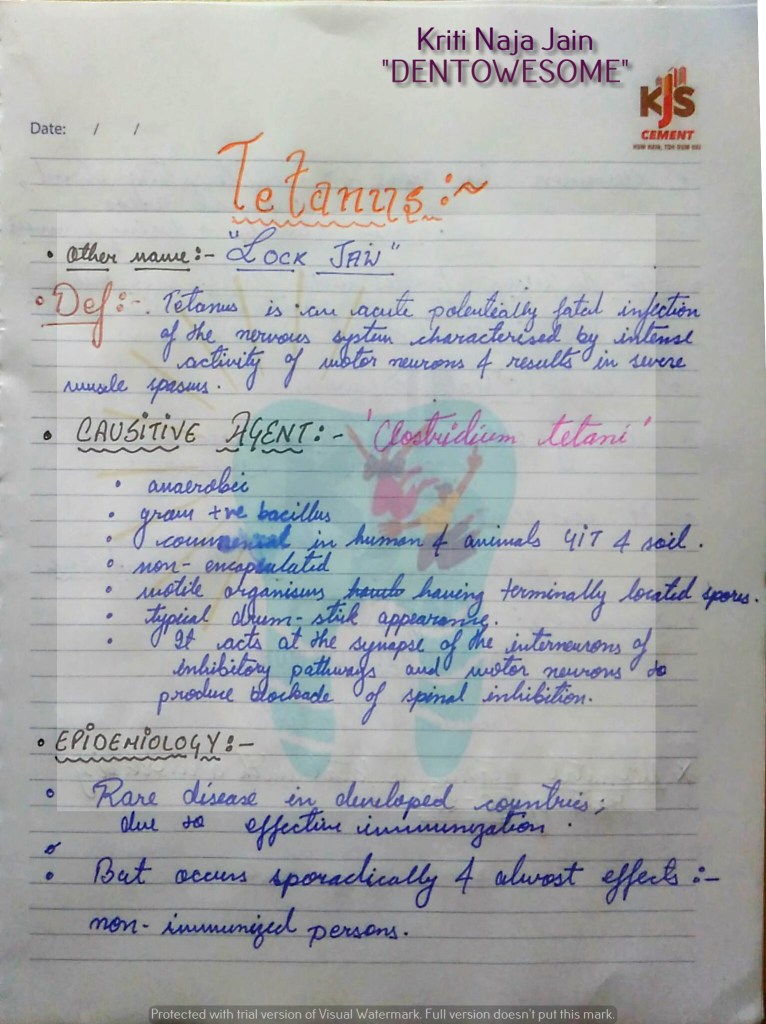 Kriti Naja Jain
"DENTOWESOME"
KJS
CEMENT
HUM HAIN, TOH DUM HAI
Date: / /
Tetanus:~
• Other name:- "LOCK JAW"
• Def:-. Tetanus is an acute potentially fatal infection
of the nervous system characterised by intense
activity of motor neurons & results in severe
muscle spasms.
• CAUSITIVE AGENT:- 'Clostridium tetani'
• anaerobic
• gram +ve bacillus
• commensal in human & animals GIT & soil.
• non-encapsulated
• motile organisms having terminally located spores.
• typical drum-stick appearance.
• It acts at the synapse of the interneurons of
inhibitory pathways and motor neurons to
produce blockade of spinal inhibition.
• EPIDEMIOLOGY:-
• Rare disease in developed countries;
due to effective immunization.
• But occurs sporadically & almost effects:-
non-immunized persons.
Protected with trial version of Visual Watermark. Full version doesn't put this mark.